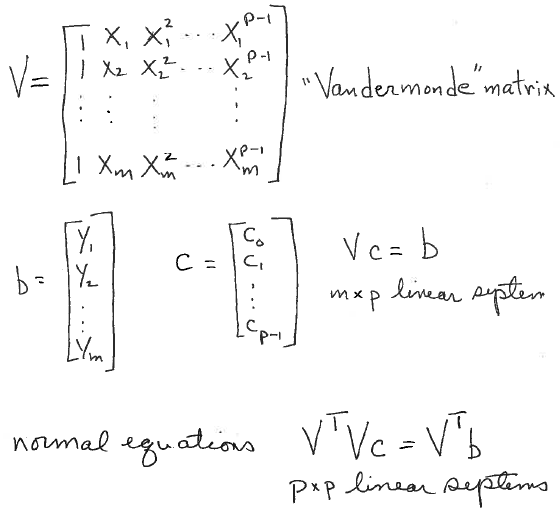 V = [ 1 X₁ X₁² ⋯ X₁ᵖ⁻¹
1 X₂ X₂² ⋯ X₂ᵖ⁻¹
⋮ ⋮ ⋮ ⋮
1 Xₘ Xₘ² ⋯ Xₘᵖ⁻¹ ] "Vandermonde" matrix
b = [ Y₁ Y₂ ⋮ Yₘ ] C = [ C₀ C₁ ⋮ Cₚ₋₁ ] Vc = b
m×p linear system
normal equations VᵀVc = Vᵀb
p×p linear systems